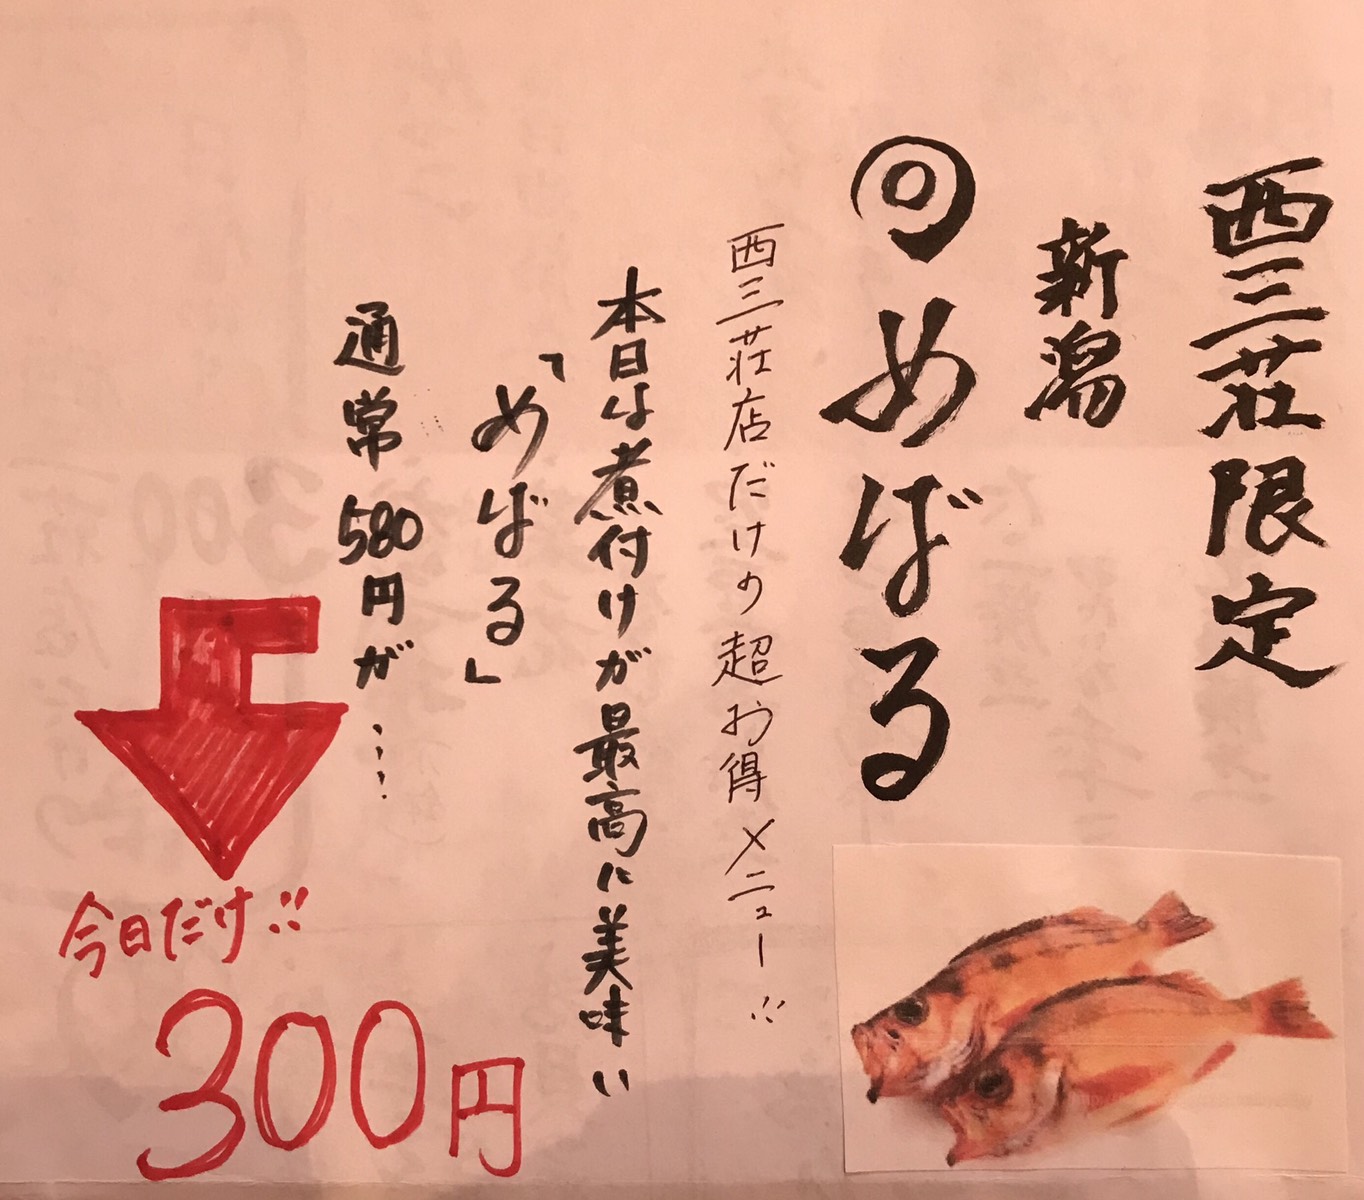 西三荘限定
新潟
◎めばる
西三荘店だけの超お得メニュー!!
本日は煮付けが最高に美味い
「めばる」
通常580円が…
今日だけ!!
300円